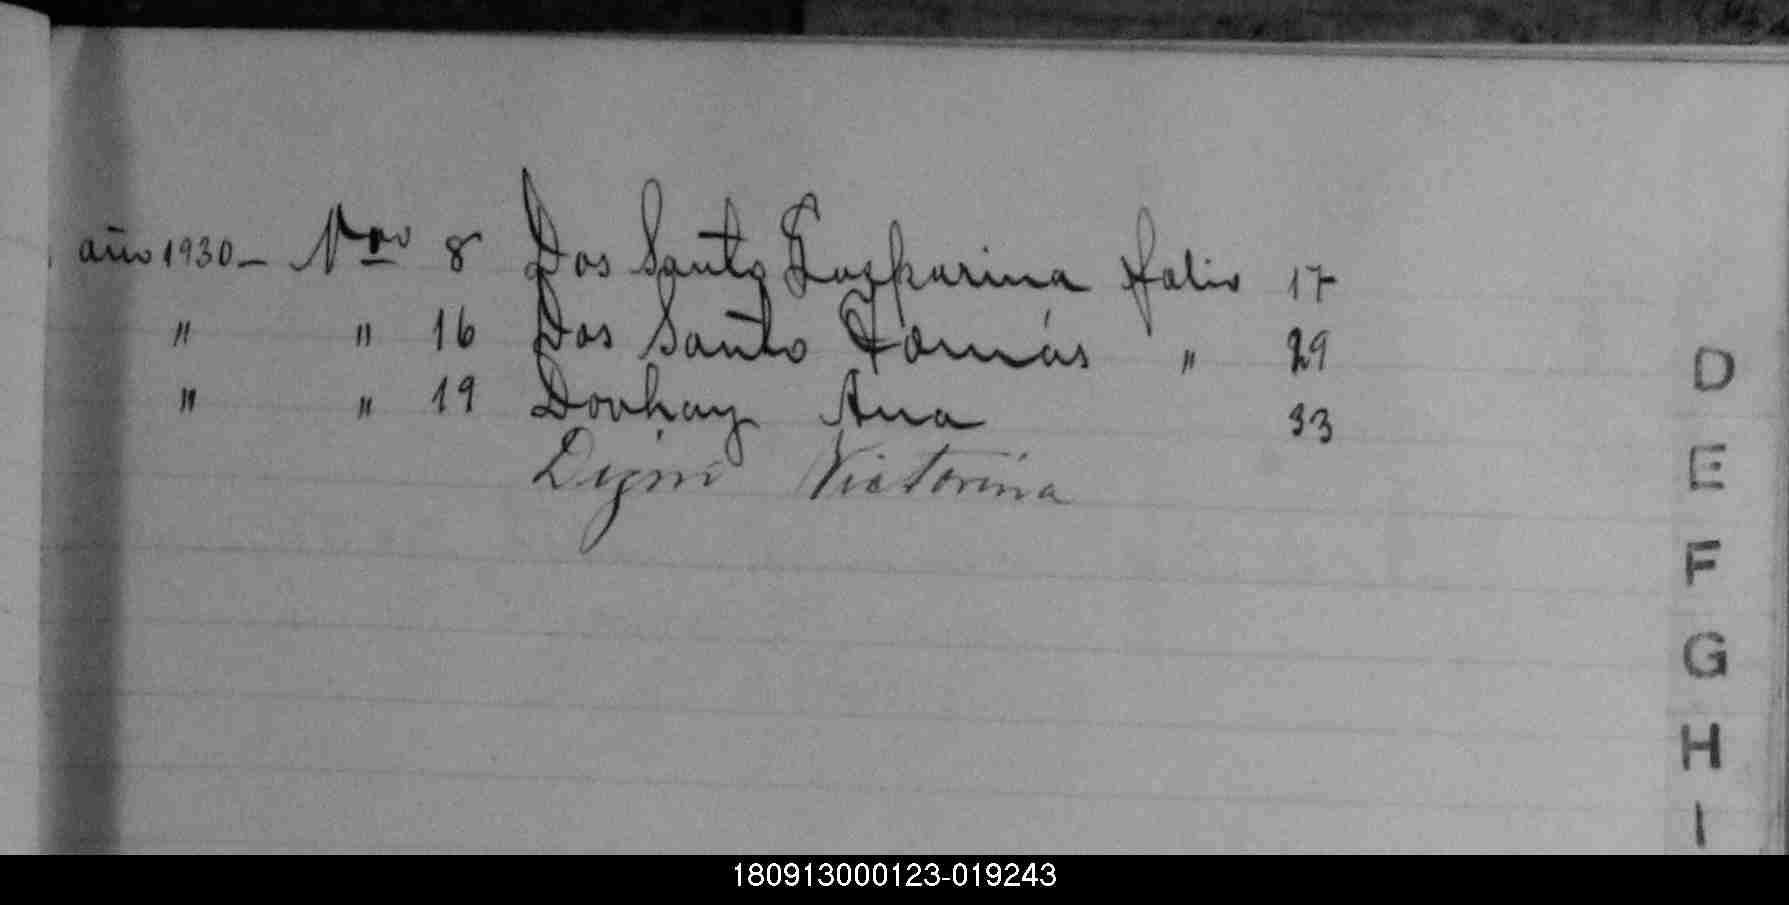 año 1930 - Nro 8 Dos Santo Gasparina folio 17
" " 16 Dos Santo Tomás " 29
" " 19 Dovhay Ana 33
Victorina
D
E
F
G
H
I
180913000123-019243